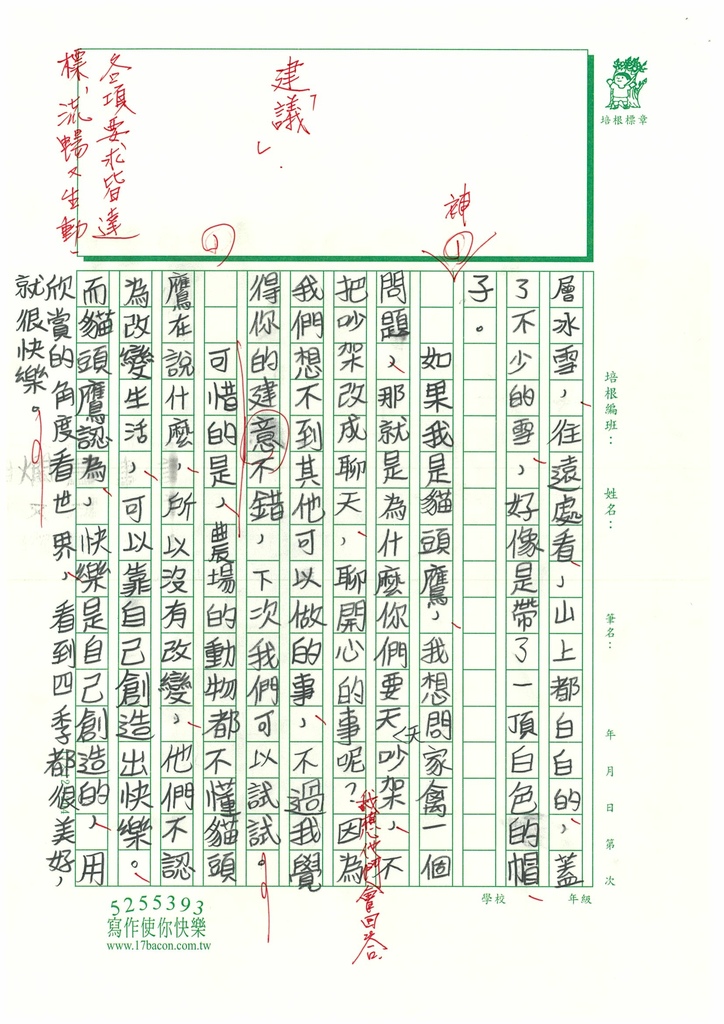 培根標章
建議
各項要求皆達
標,流暢又生動。
神
1
1
培根編班：
姓名：
筆名：
年 月 日 第 次
學校
年級
層冰雪，往遠處看，山上都白白的，蓋
了不少的雪，好像是帶了一頂白色的帽
子。
如果我是貓頭鷹，我想問家禽一個
問題，那就是為什麼你們要天天吵架，不
把吵架改成聊天，聊開心的事呢？因為
我想他們會回答
我們想不到其他可以做的事，不過我覺
得你的建意不錯，下次我們可以試試。
可惜的是，農場的動物都不懂貓頭
鷹在說什麼，所以沒有改變，他們不認
為改變生活，可以靠自己創造出快樂。
而貓頭鷹認為，快樂是自己創造的，用
欣賞的角度看世界，看到四季都很美好，
就很快樂。
5255393
寫作使你快樂
www.17bacon.com.tw